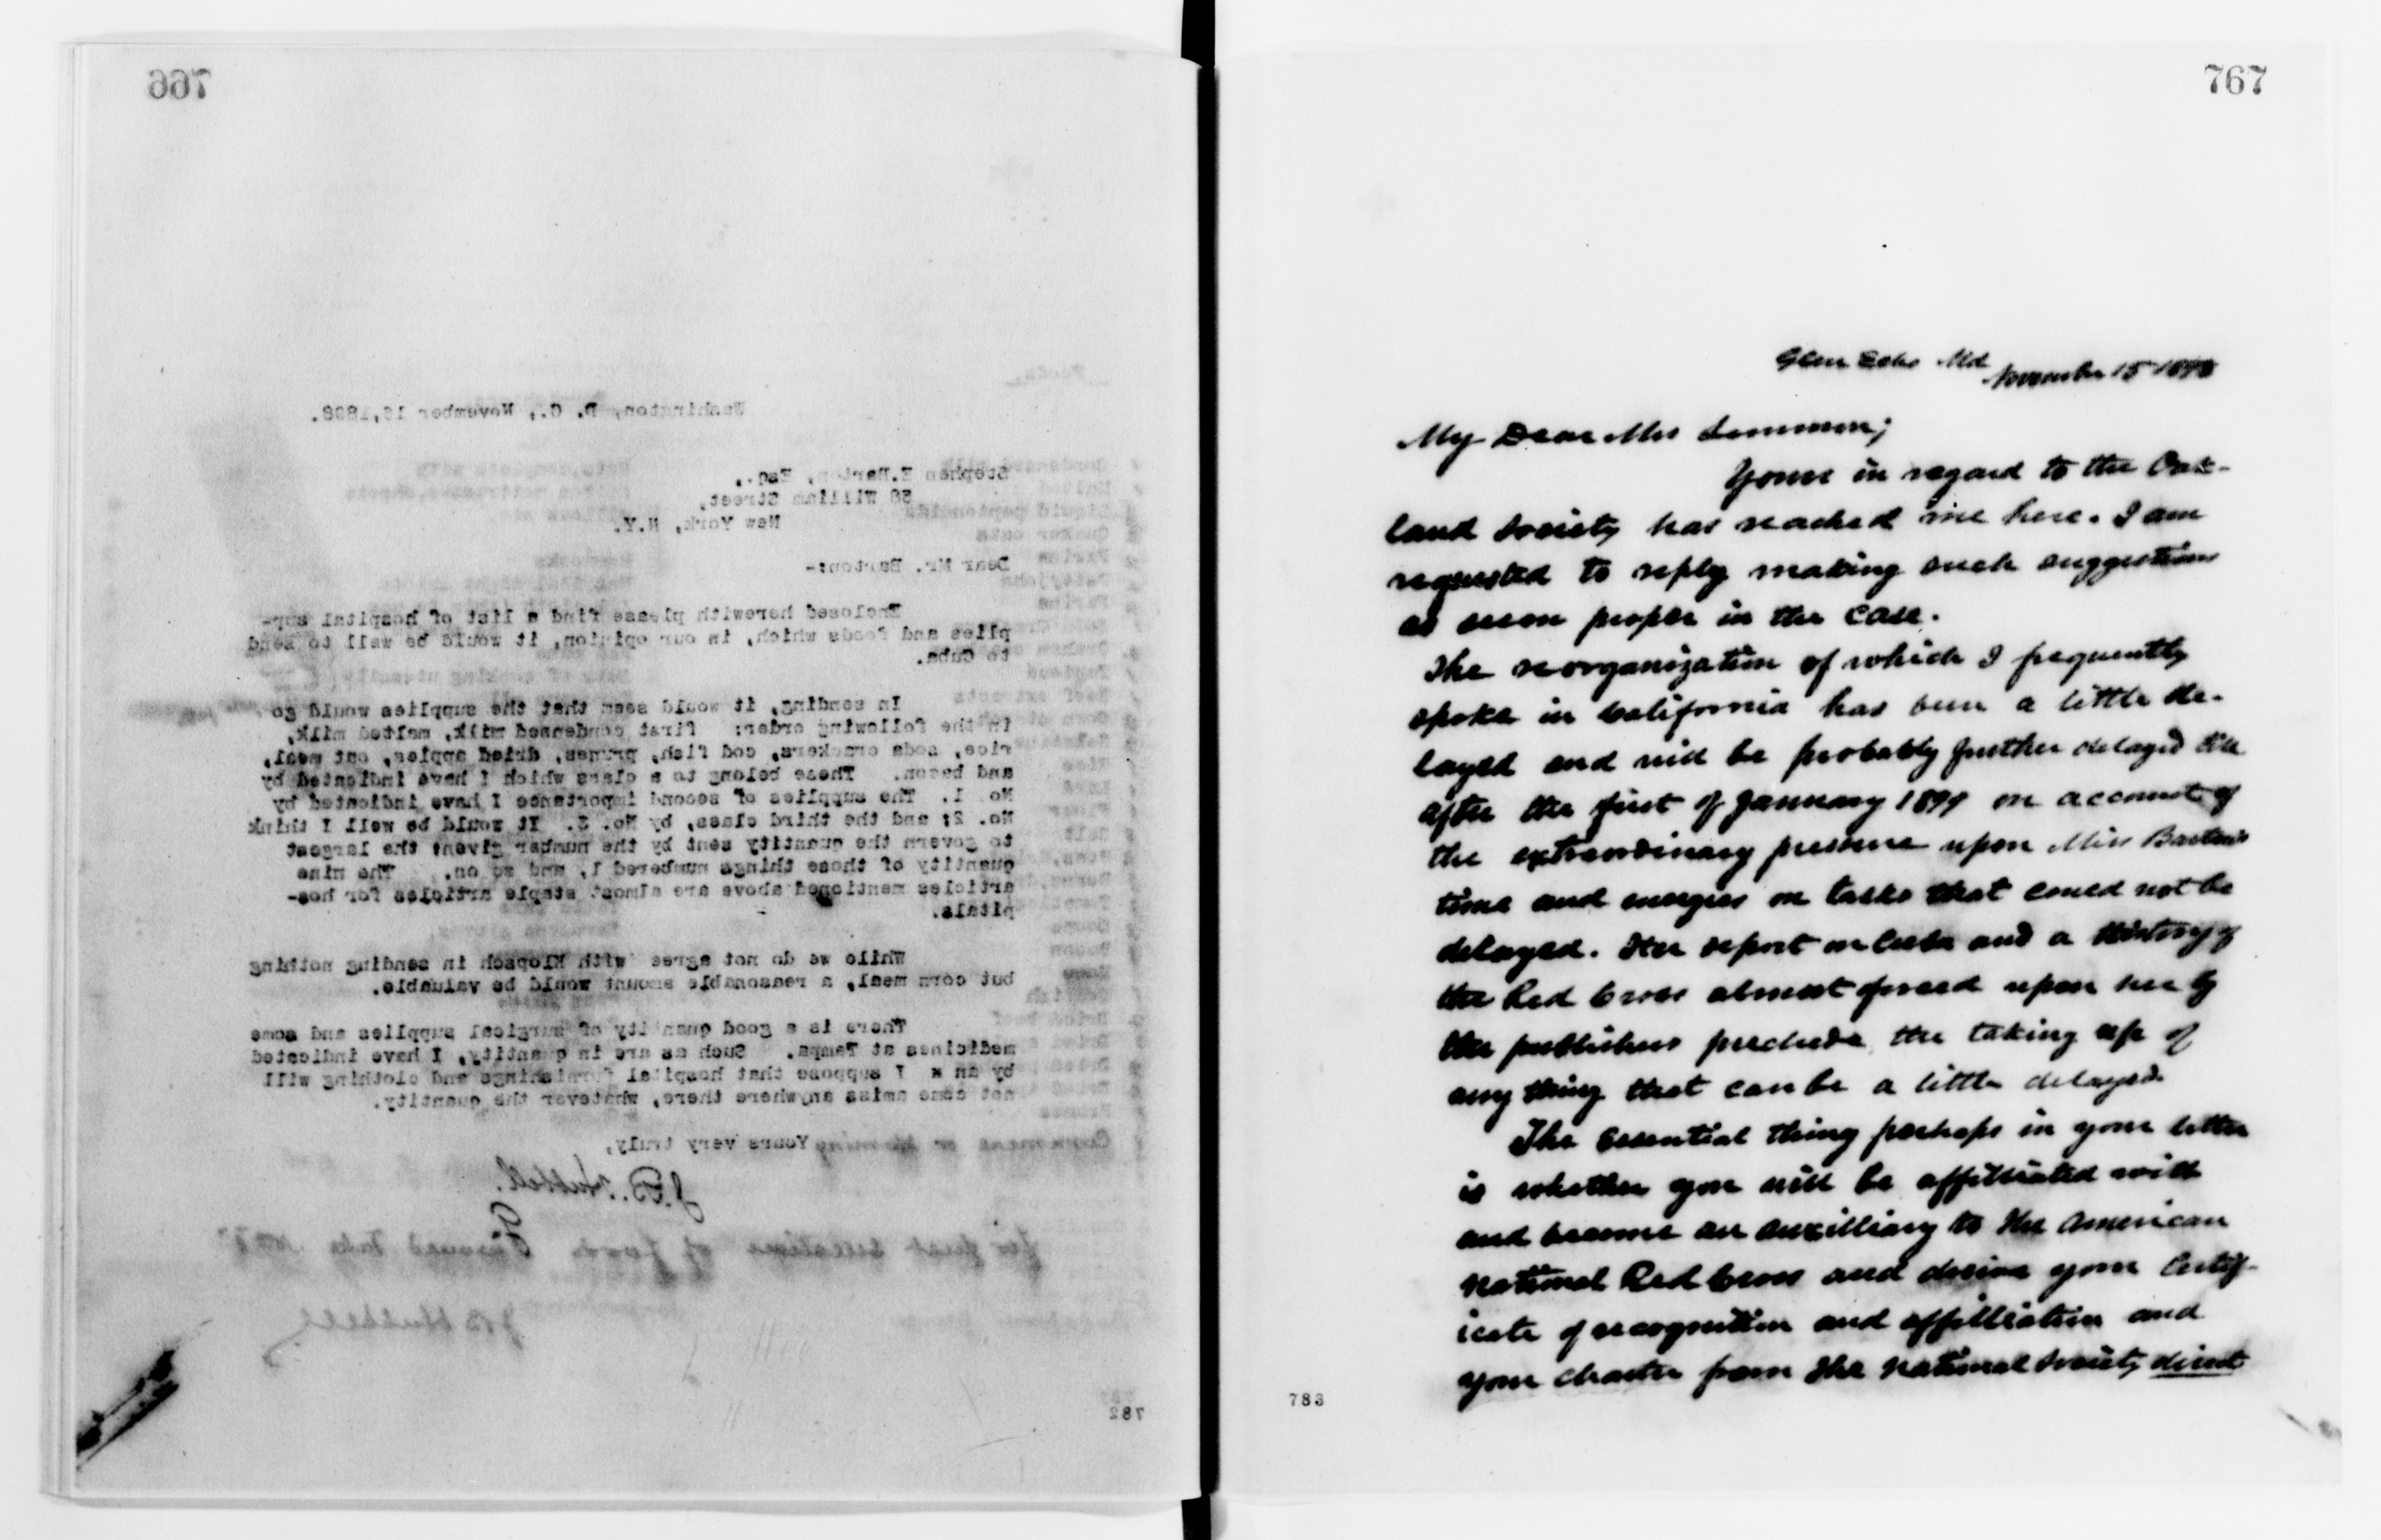 766
Washington, D. C., November 16, 1898.
Stephen E. Barton, Esq.,
58 William Street,
New York, N.Y.
Dear Mr. Barton:-
Enclosed herewith please find a list of hospital sup-
plies and foods which, in our opinion, it would be well to send
to Cuba.
In sending, it would seem that the supplies would go
in the following order: first condensed milk, malted milk,
rice, soda crackers, cod fish, prunes, dried apples, oat meal,
and bacon. These belong to a class which I have indicated by
No. 1. The supplies of second importance I have indicated by
No. 2; and the third class, by No. 3. It would be well I think
to govern the quantity sent by the number given; the largest
quantity of those things numbered 1, and so on. The nine
articles mentioned above are almost staple articles for hos-
pitals.
While we do not agree with Klopsch in sending nothing
but corn meal, a reasonable amount would be valuable.
There is a good quantity of surgical supplies and some
medicines at Tampa. Such as are in quantity, I have indicated
by an x I suppose that hospital furnishings and clothing will
not come amiss anywhere there, whatever the quantity.
Yours very truly,
J.B. Hubbell.
J B Hubbell
782
767
Glen Echo Md
November 15 1898
My Dear Mrs Lemmon;
Yours in regard to the Oak-
land Society has reached me here. I am
requested to reply making such suggestions
as seem proper in the case.
The reorganization of which I frequently
spoke in California has been a little de-
layed and will be probably further delayed till
after the first of January 1899 on account of
the extraordinary pressure upon Miss Barton's
time and energies on tasks that could not be
delayed. Her report on Cuba and a History of
the Red Cross almost forced upon her by
the publishers preclude the taking up of
any thing that can be a little delayed.
The essential thing perhaps in your letter
is whether you will be affilliated with
and become an auxilliary to the American
National Red Cross and desire your Certif-
icate of recognition and affilliation and
your charter from the National Society direct
783